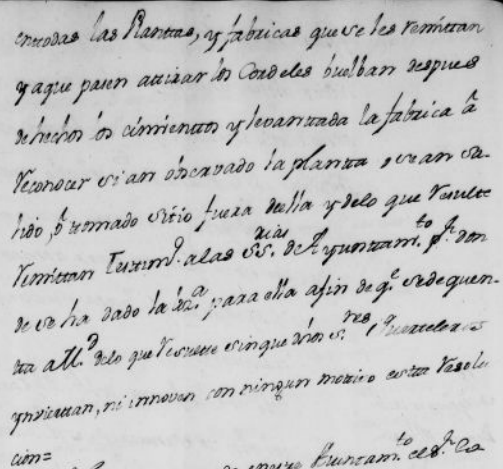 en todas las Planttas, y fabricas que se les remittan
y a que pasen attirar los Cordeles buelban despues
de hechos los cimienttos y levanttada la fabrica â
reconocer si an observado la plantta o se an sa-
lido, ô tomado sitio fuera della y de lo que resulte
remittan Testim.º a las SS.rias de Ayuntam.to p.r don
de se ha dado la liz.a para ella afin de q.e se de quen-
tta a M.d de lo que resultte sin que dhos s.res Quarteleros
ynviertan, ni innoven con ningun motivo estta resolu
cion=
Ayuntam.to el s.r Co